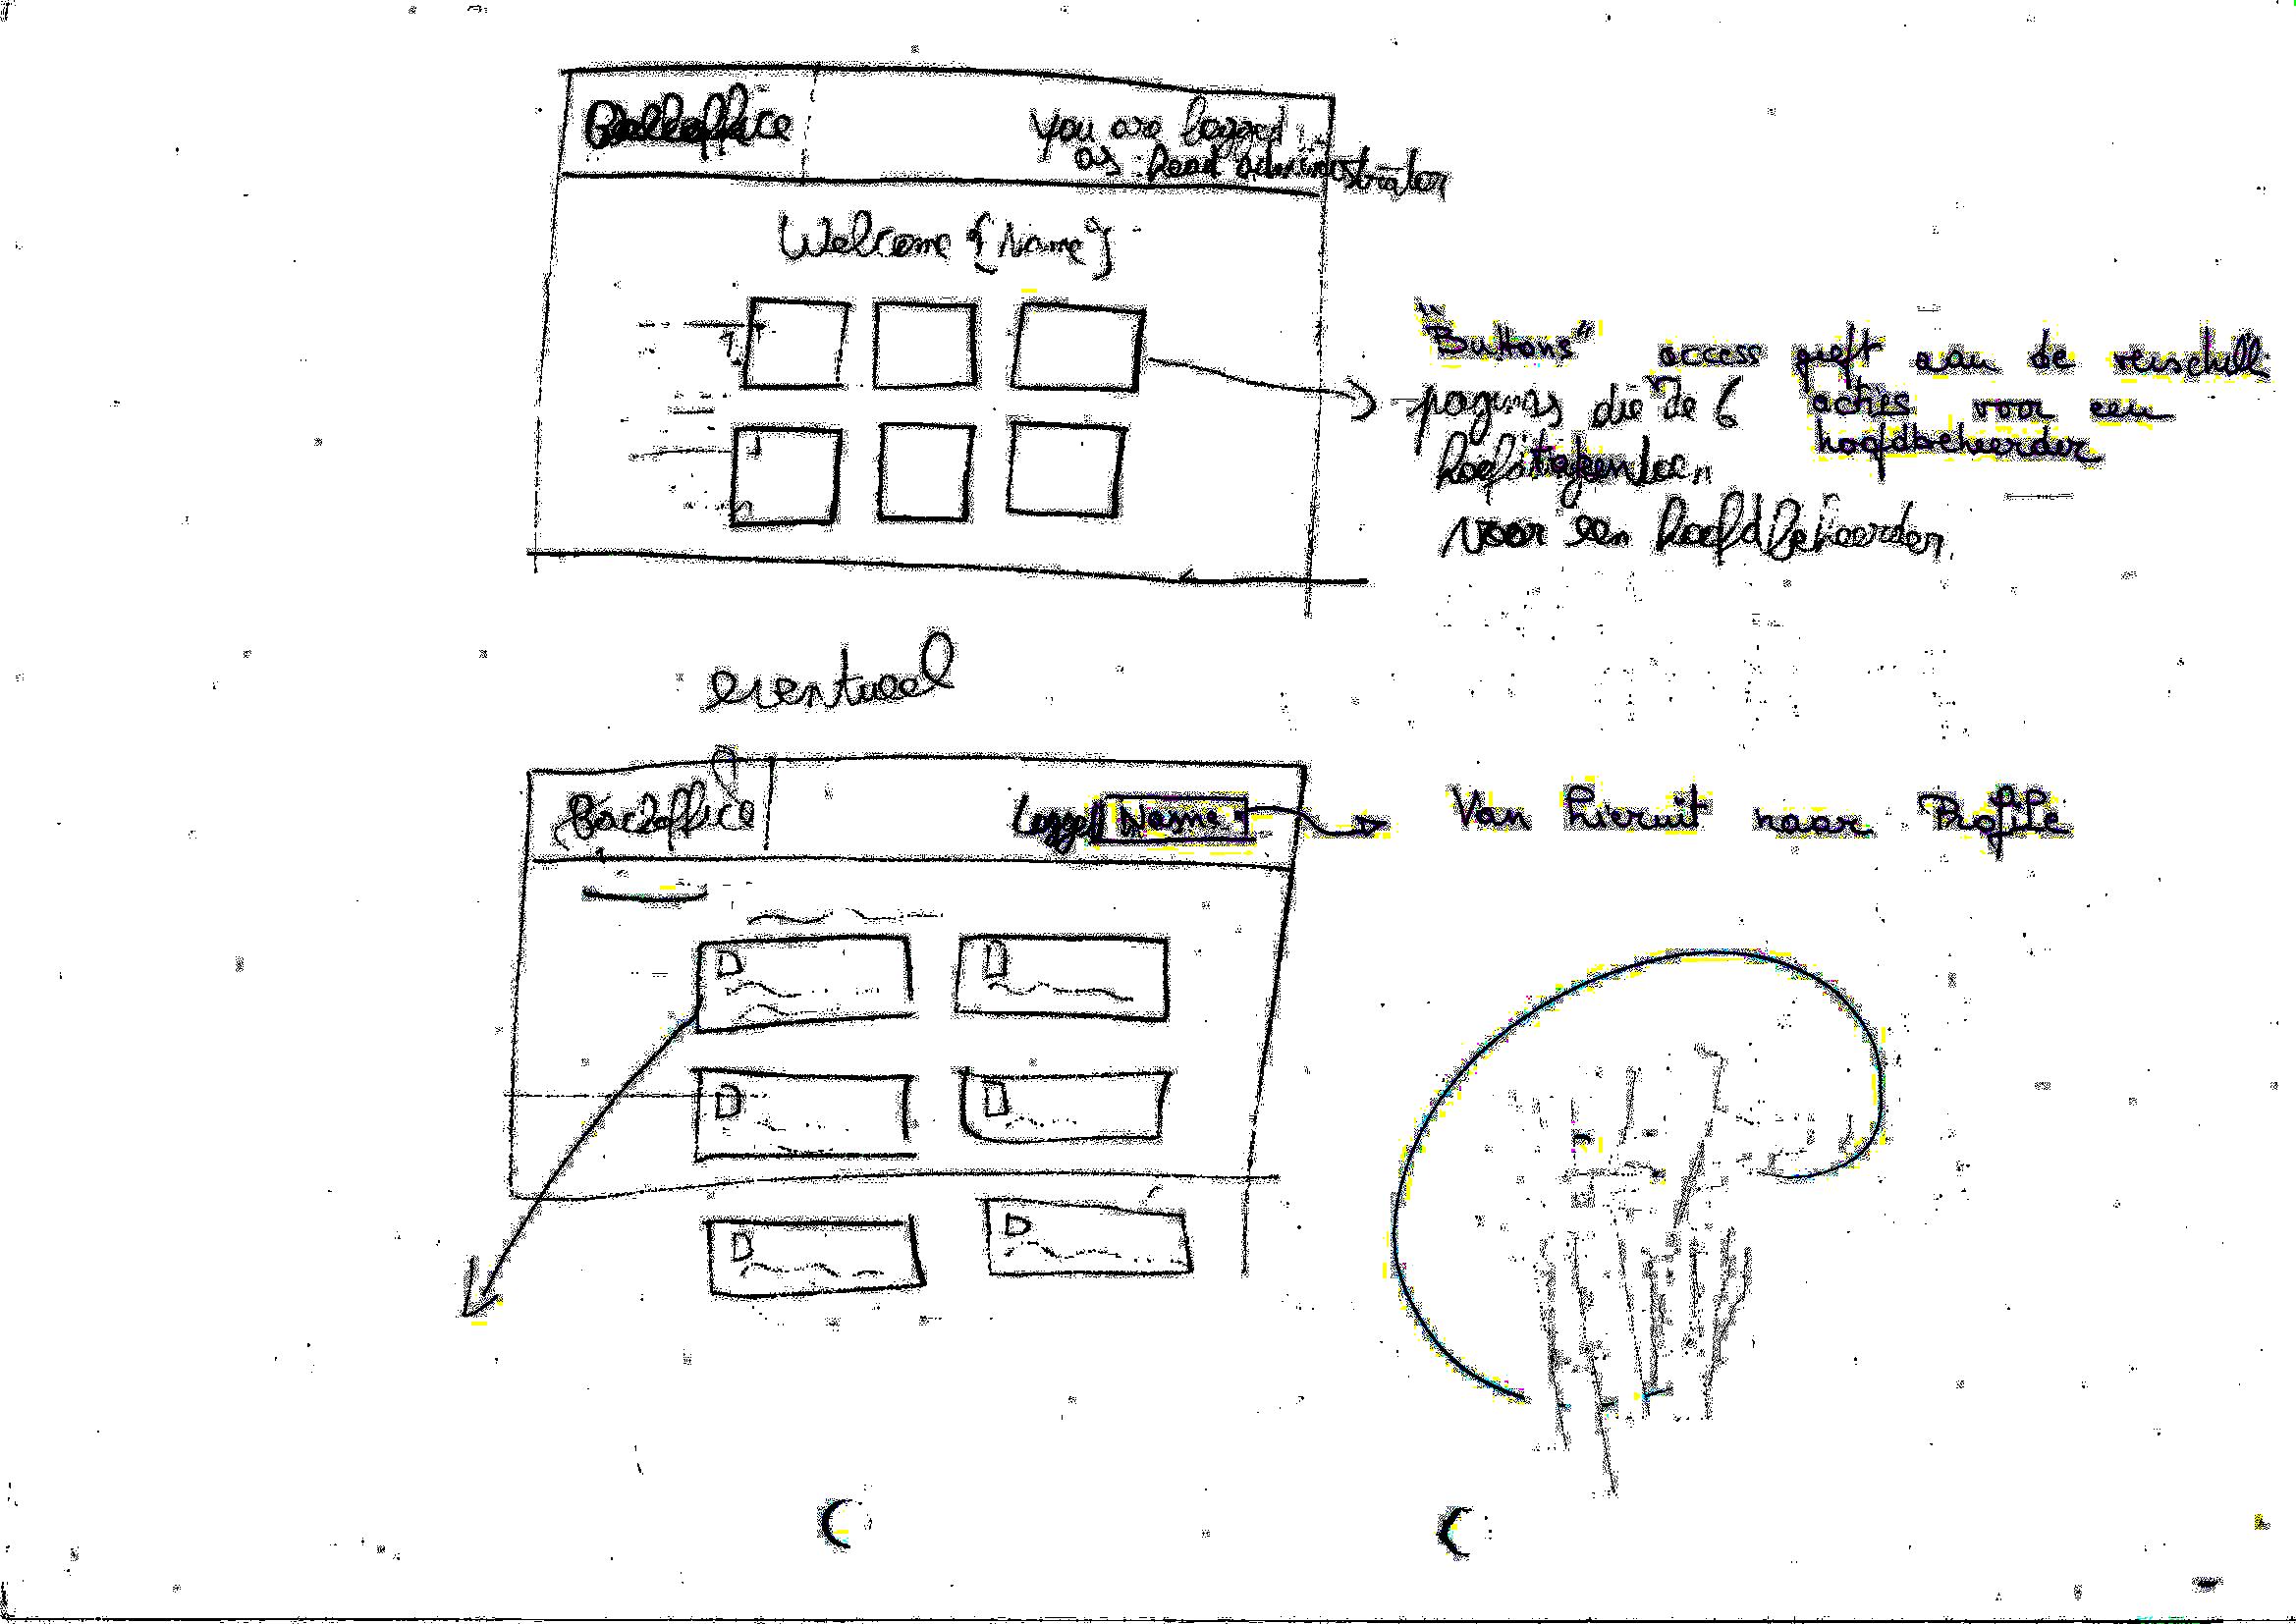 Backoffice
You are logged
as head administrator
Welcome {Name}
"Buttons" access geeft aan de verschill
pagina's die de 6 acties voor een
hoofdtaken hoofdbeheerder
voor een hoofdbeheerder.
eventueel
Backoffice
Logged Name
Van hieruit naar Profile
D D
D D
D D